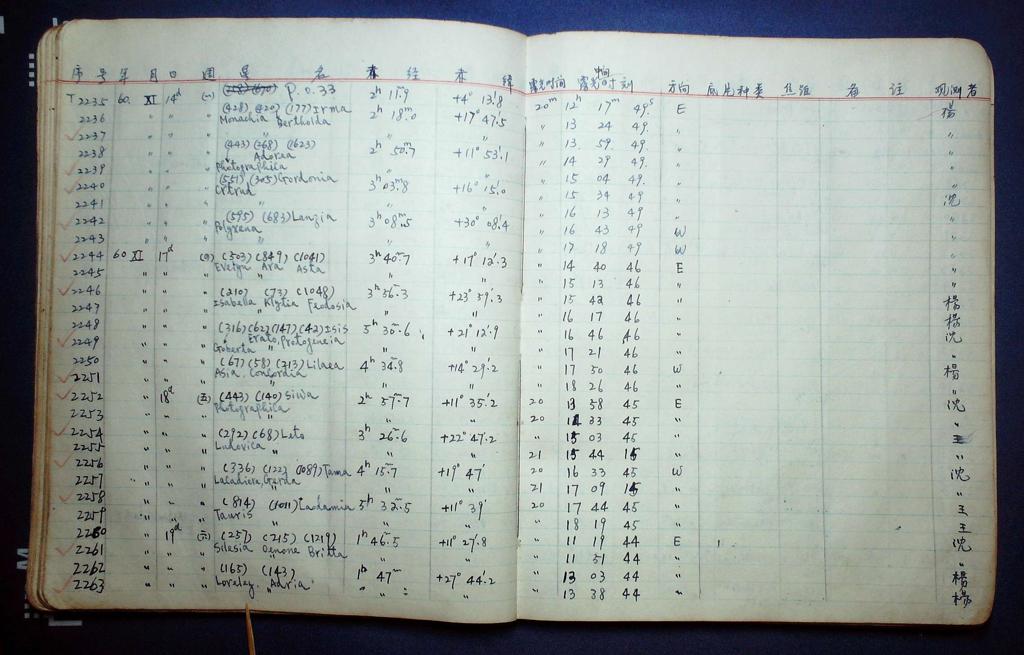 序号 年 月 日 週 星 名 赤 经 赤 纬 露光时间 中间露光时刻 方向 底片种类 焦距 备 注 观测者
T2235 60. XI 14d (一) P.O.33 2h 11m.9 +4° 13'.8 20m 12h 17m 49s E 杨
2236 " " (428) (420) (177) Irma 2h 18m.0 +17° 47'.5 " 13 24 49. "
Monachia Bertholda
2237 " " " " " 13 59. 49. "
2238 " " (443) (268) (1623) 2h 50m.7 +11° 53'.1 " 14 29 49. "
Adorea
2239 " " Photographica " " " 15 04 49. "
2240 " " (551) (305) Gordonia 3h 03m.8 +16° 15'.0 " 15 34 49 沈
Ortrud
2241 " " " " " 16 13 49 "
2242 " " (595) (683) Lanzia 3h 08m.5 +30° 08'.4 " 16 43 49 W "
Polyxena
2243 " " " " " " 17 18 49 W "
2244 60 XI 17d (四) (503) (849) (1041) 3h 40m.7 +17° 12'.3 " 14 40 46 E "
Evelyn Ara Asta
2245 " " " " " 15 13 46 " "
2246 " " (210) (73) (1048) 3h 56m.3 +23° 59'.3 " 15 42 46 " 杨
Isabella Klytia Feodosia
2247 " " " " " 16 17 46 " 杨
2248 " " (316) (62) (147) (42) Isis 5h 30m.6 +21° 12'.9 " 16 46 46 " 沈
Erato, Protogeneia
2249 " " Goberta " " " 17 21 46 " "
2250 " " (67) (58) (213) Lilaea 4h 34m.8 +14° 29'.2 " 17 50 46 W 杨
Asia, Concordia
2251 " " " " " 18 26 46 " "
2252 " 18d (五) (443) (140) Siwa 2h 57m.7 +11° 35'.2 20 13 58 45 E 沈
Photographica
2253 " " " " 20 14 33 45 " "
2254 " " (292) (68) Leto 3h 26m.6 +22° 47'.2 " 15 03 45 " 王
Ludovica
2255 " " " " 21 15 44 15 " "
2256 " " (336) (122) (1089) Tama 4h 15m.7 +19° 47' 20 16 33 45 W 沈
Lacadiera, Gerda
2257 " " " " 21 17 09 15 " "
2258 " " (814) (1011) Laodamia 5h 32m.5 +11° 39' 20 17 44 45 " 王
Tauris
2259 " " " " " 18 19 45 " 王
2260 " 19d (六) (257) (215) (1219) 1h 46m.5 +11° 27'.8 " 11 19 44 E 沈
Silesia Oenone Britta
2261 " " " " " 11 51 44 " "
2262 " " (165) (143) 1h 47m +27° 44'.2 " 13 03 44 " 杨
Loreley, Adria
2263 " " " " " " 13 38 44 " 杨